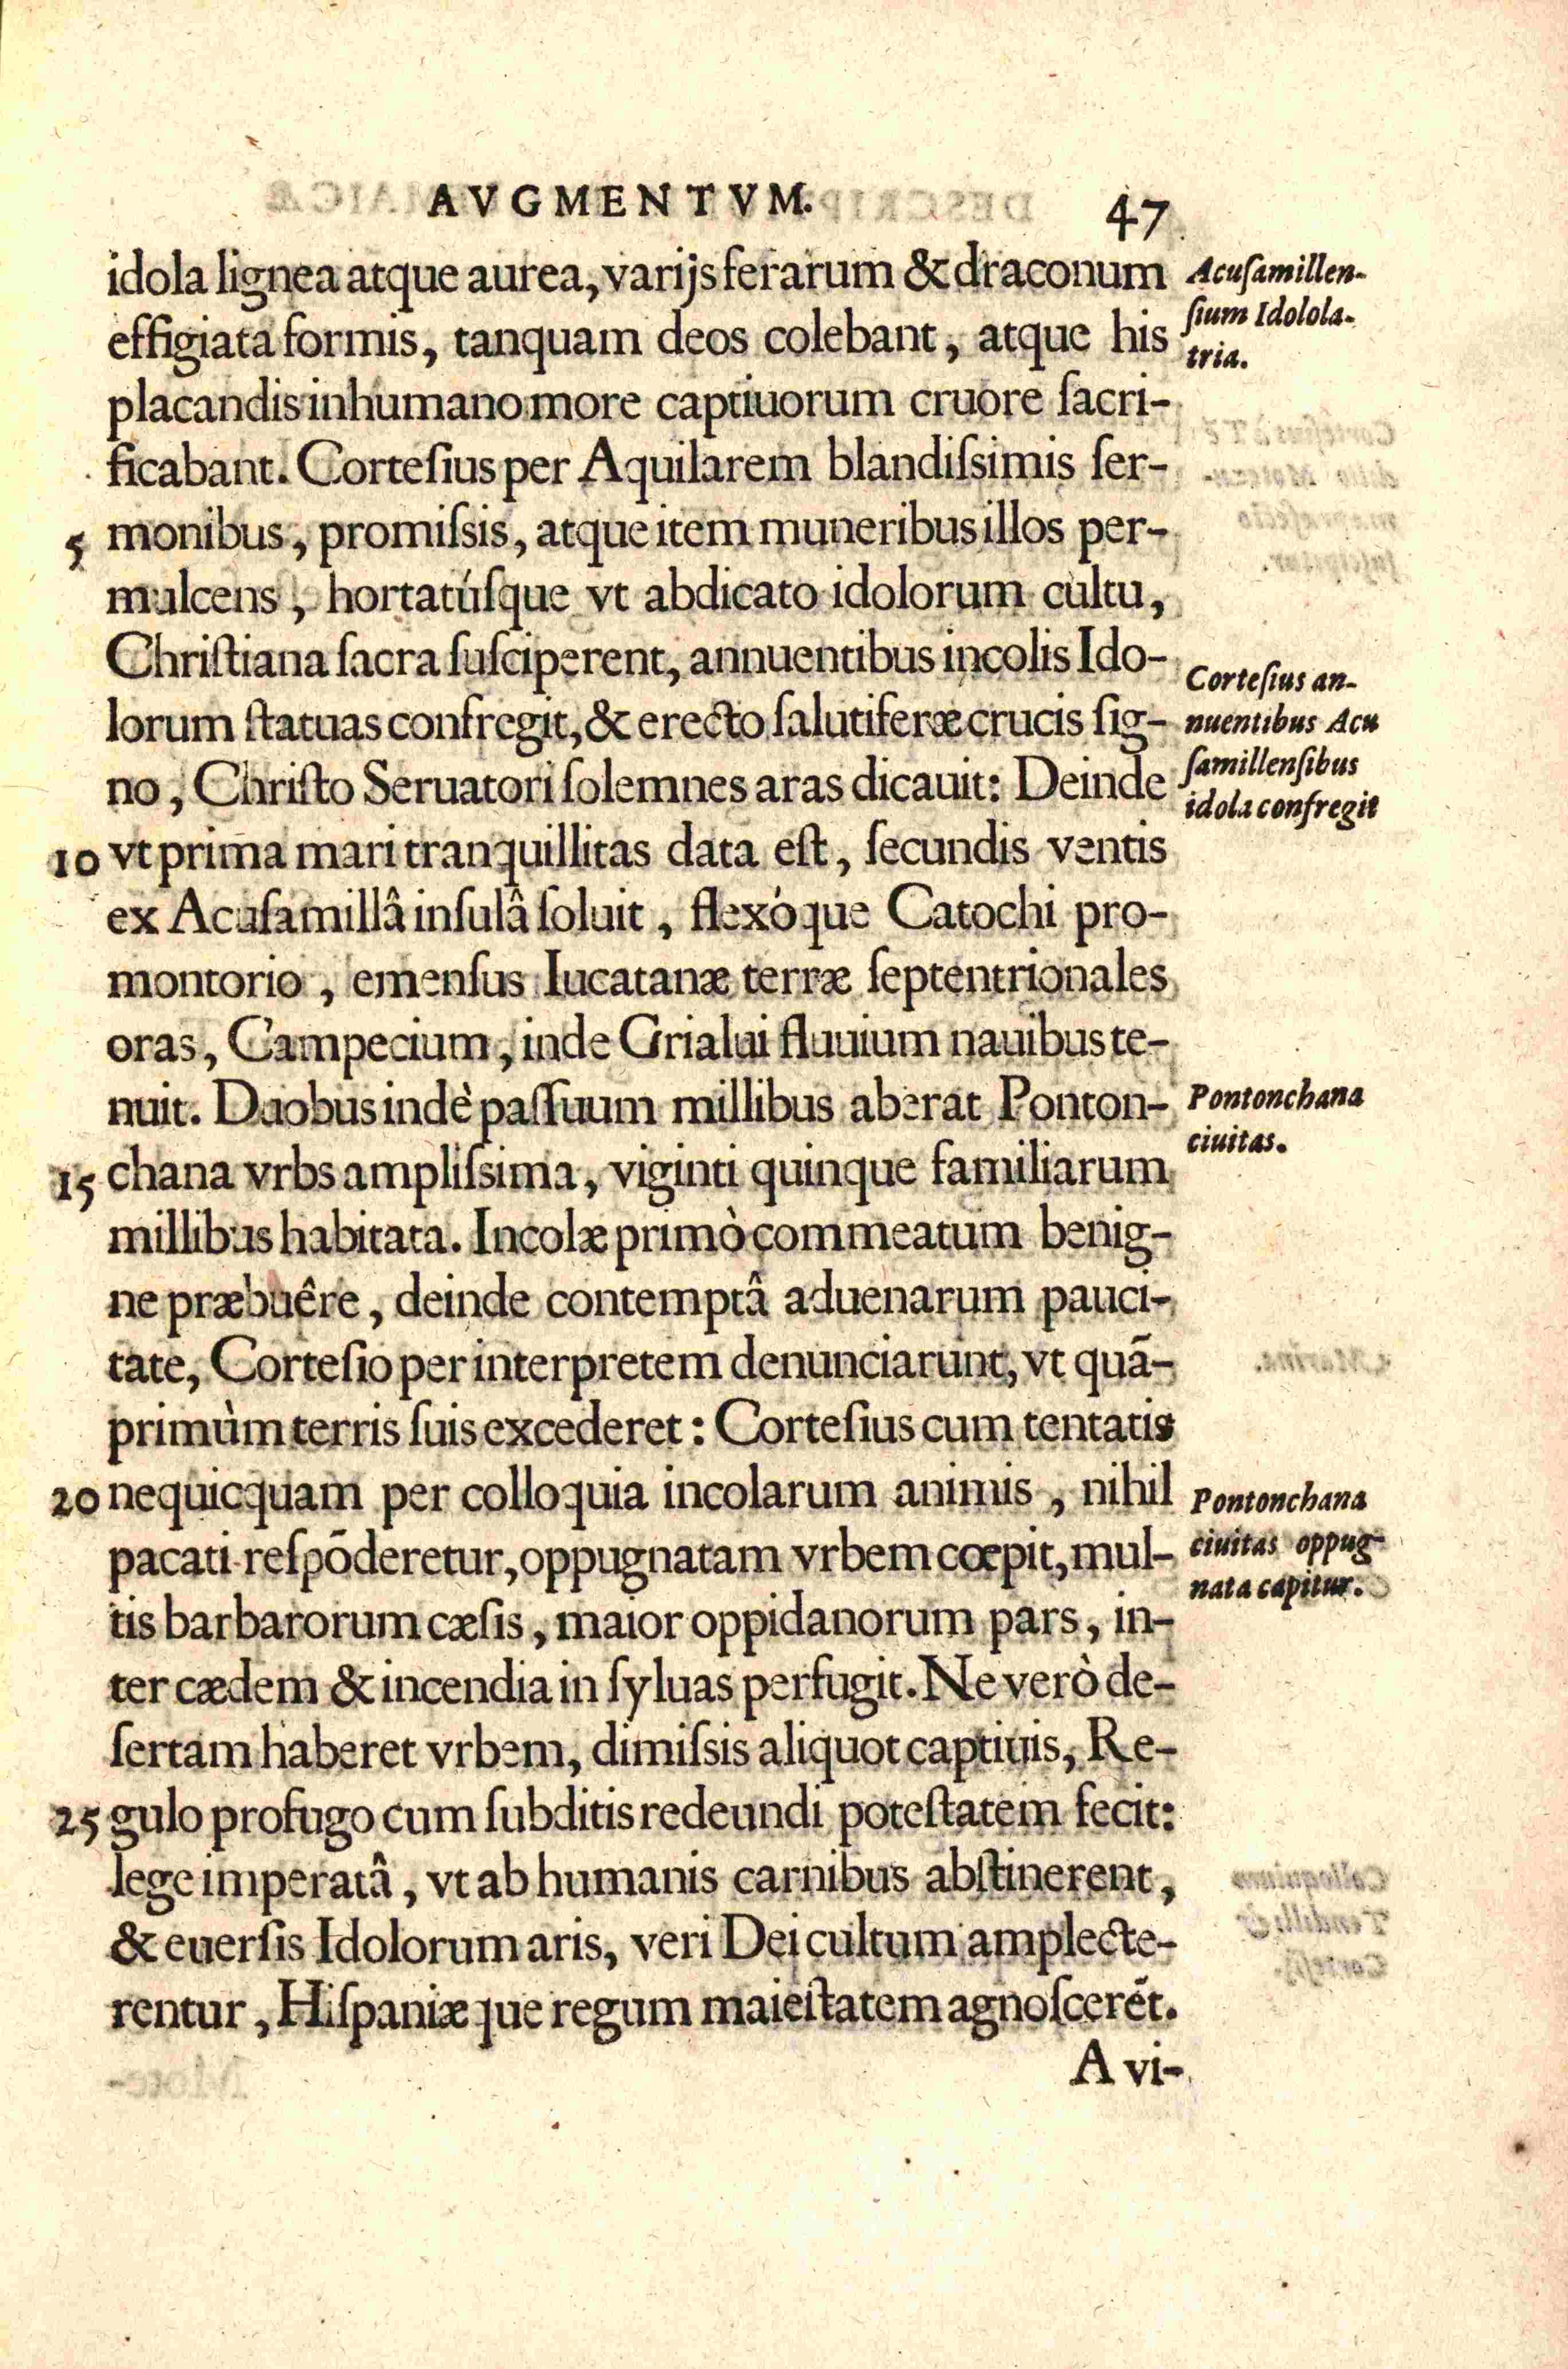 AVGMENTVM. 47
idola lignea atque aurea, varijs ferarum & draconum
effigiata formis, tanquam deos colebant, atque his
placandis inhumano more captiuorum cruore ſacri-
ficabant. Corteſius per Aquilarem blandiſsimis ſer-
5 monibus, promiſsis, atque item muneribus illos per-
mulcens, hortatúſque vt abdicato idolorum cultu,
Chriſtiana ſacra ſuſciperent, annuentibus incolis Ido-
lorum ſtatuas confregit, & erecto ſalutiferæ crucis ſig-
no, Chriſto Seruatori ſolemnes aras dicauit: Deinde
10 vt prima mari tranquillitas data eſt, ſecundis ventis
ex Acuſamillâ inſulâ ſoluit, flexóque Catochi pro-
montorio, emenſus Iucatanæ terræ ſeptentrionales
oras, Campecium, inde Grialui fluuium nauibus te-
nuit. Duobus indè paſſuum millibus aberat Ponton-
15 chana vrbs ampliſsima, viginti quinque familiarum
millibus habitata. Incolæ primò commeatum benig-
ne præbuêre, deinde contemptâ aduenarum pauci-
tate, Corteſio per interpretem denunciarunt, vt quā-
primùm terris ſuis excederet: Corteſius cum tentatis
20 nequicquam per colloquia incolarum animis, nihil
pacati reſpōderetur, oppugnatam vrbem cœpit, mul-
tis barbarorum cæſis, maior oppidanorum pars, in-
ter cædem & incendia in ſyluas perfugit. Ne verò de-
ſertam haberet vrbem, dimiſsis aliquot captiuis, Re-
25 gulo profugo cum ſubditis redeundi poteſtatem fecit:
lege imperatâ, vt ab humanis carnibus abſtinerent,
& euerſis Idolorum aris, veri Dei cultum amplecte-
rentur, Hiſpaniæque regum maieſtatem agnoſcerēt.
A vi-
Acuſamillen-
ſium Idolola-
tria.
Corteſius an-
nuentibus Acu
ſamillenſibus
idola confregit
Pontonchana
ciuitas.
Pontonchana
ciuitas oppug-
nata capitur.